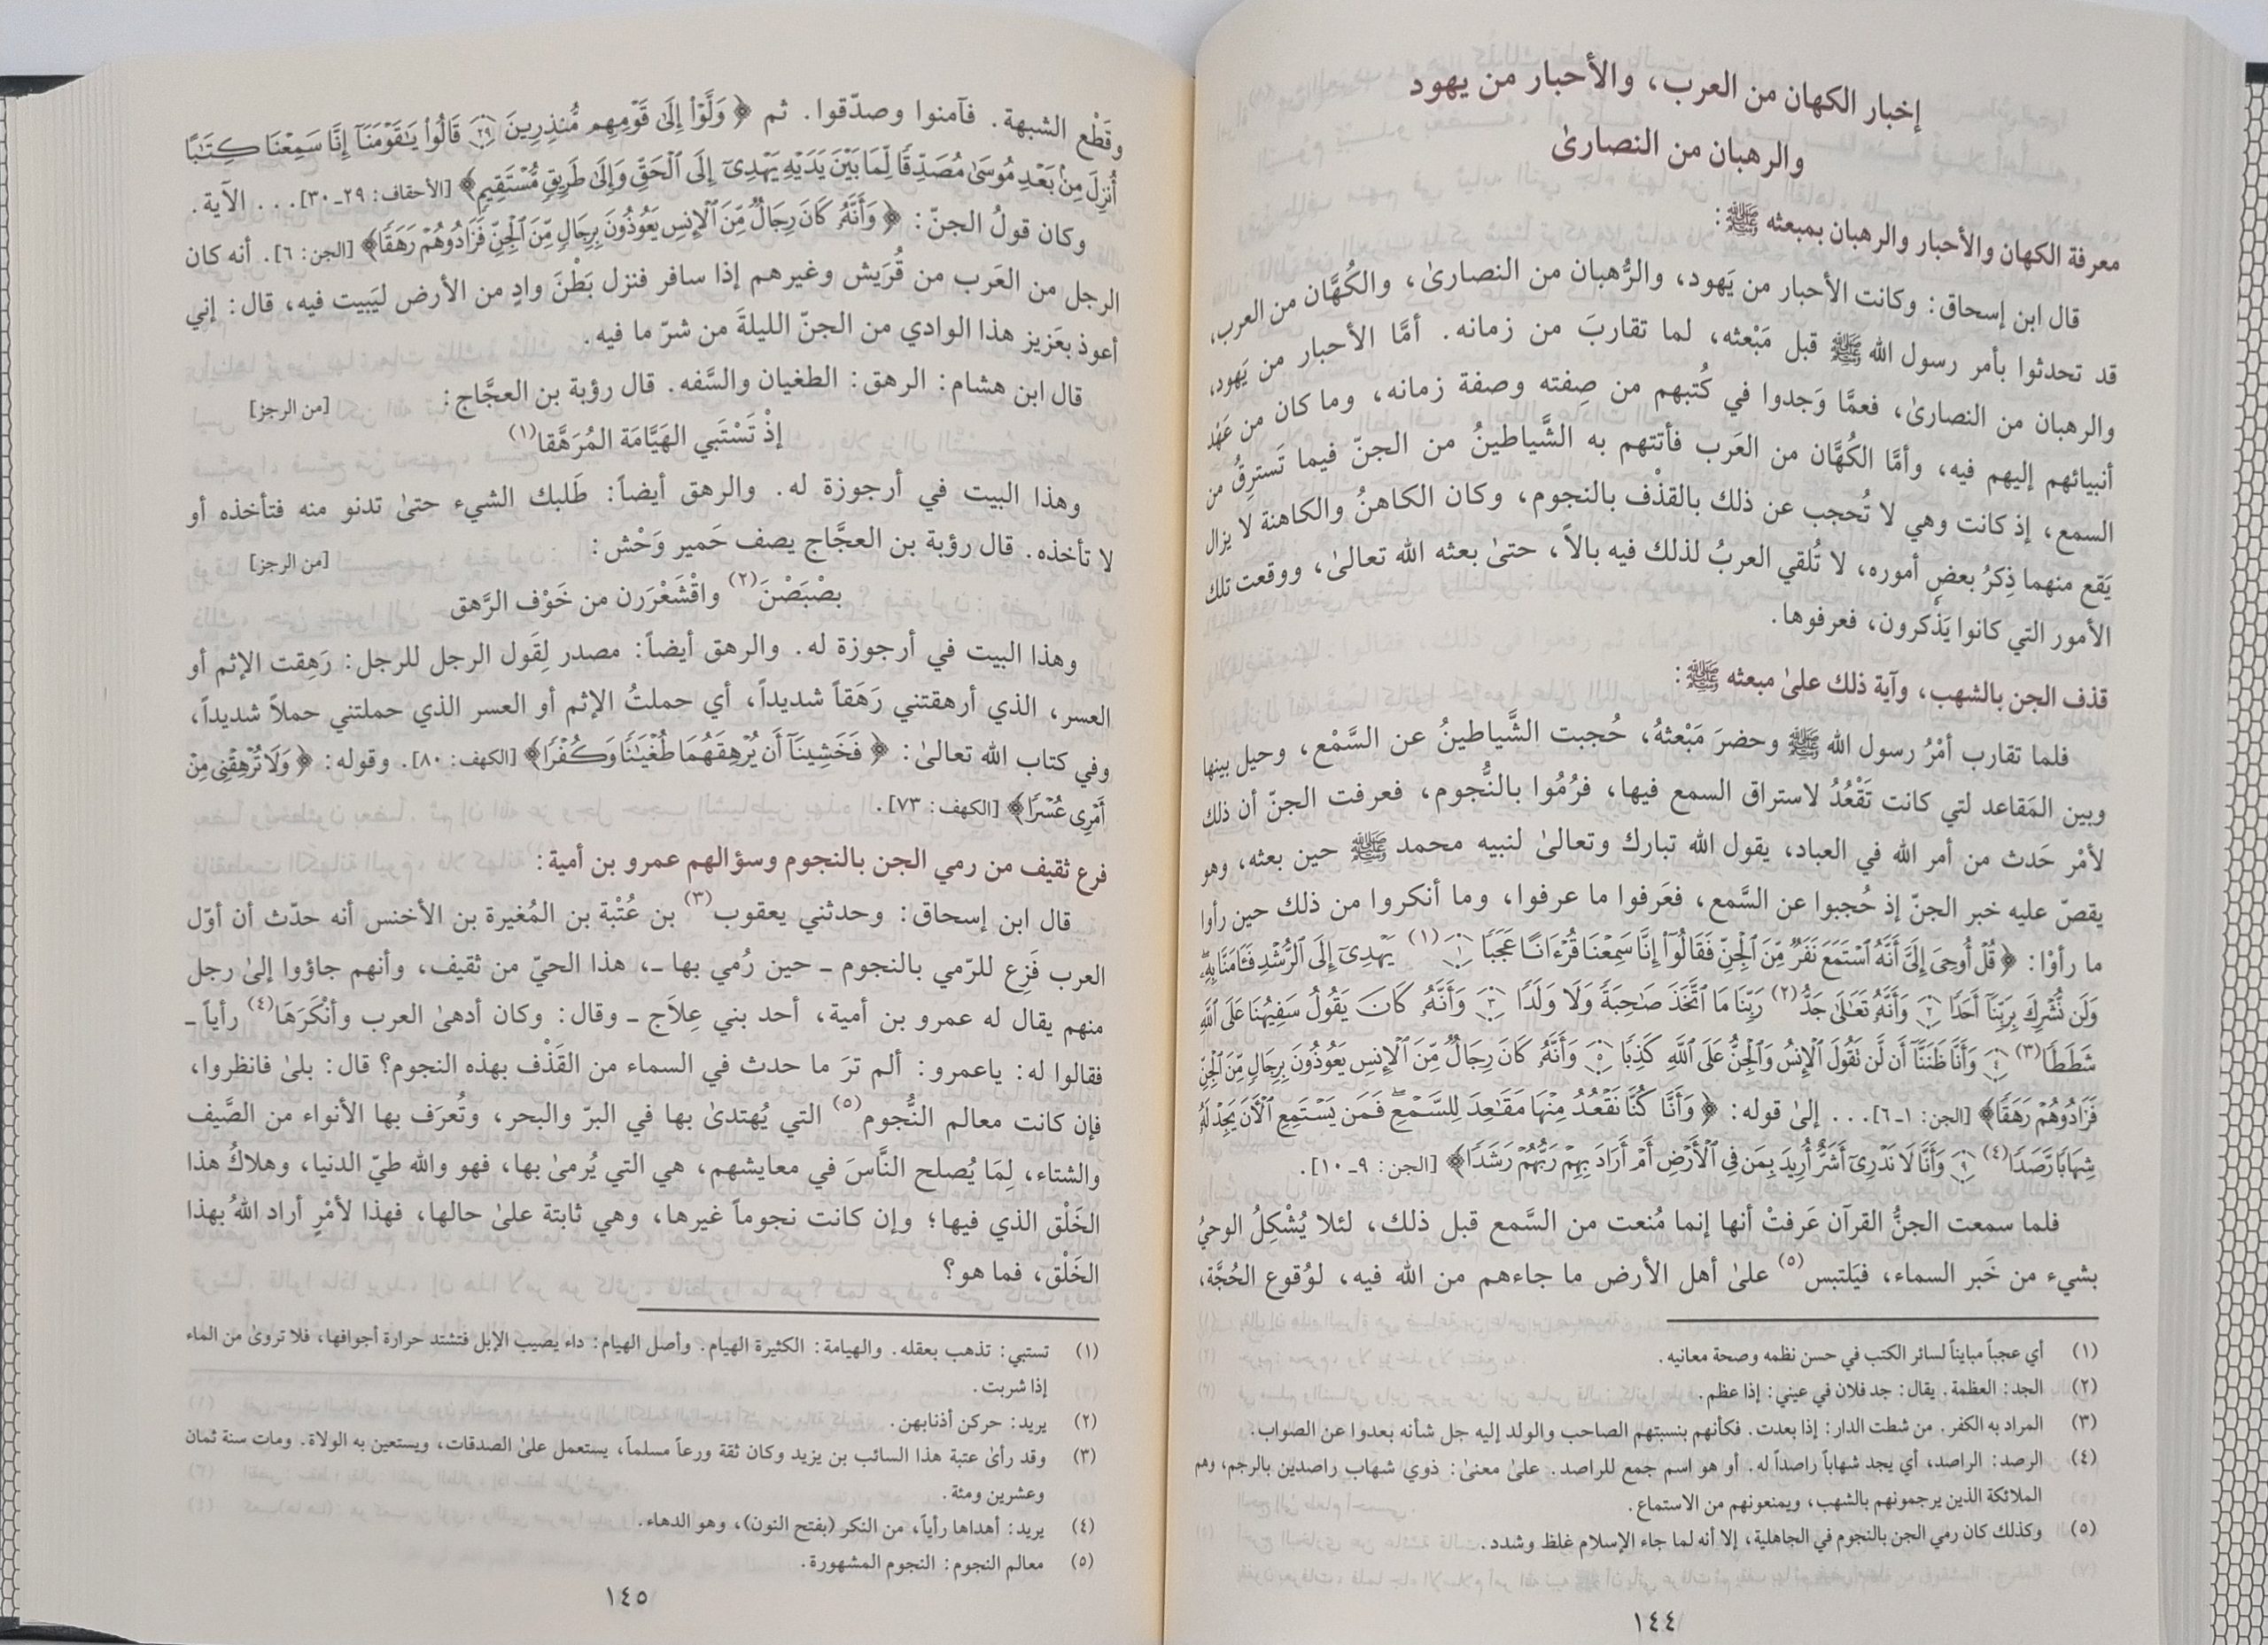 إخبار الكهان من العرب، والأحبار من يهود
والرهبان من النصارىٰ
معرفة الكهان والأحبار والرهبان بمبعثه ﷺ:
قال ابن إسحاق: وكانت الأحبار من يَهود، والرُّهبان من النصارىٰ، والكُهَّان من العرب،
قد تحدثوا بأمر رسول الله ﷺ قبل مَبْعثه، لما تقاربَ من زمانه. أمَّا الأحبار من يَهود،
والرهبان من النصارىٰ، فعمَّا وَجدوا في كُتبهم من صِفته وصفة زمانه، وما كان من عَهْد
أنبيائهم إليهم فيه، وأمَّا الكُهَّان من العَرب فأتتهم به الشَّياطينُ من الجنّ فيما تَسترِقُ من
السمع، إذ كانت وهي لا تُحجب عن ذلك بالقذْف بالنجوم، وكان الكاهنُ والكاهنة لا يزال
يَقع منهما ذِكرُ بعض أموره، لا تُلقي العربُ لذلك فيه بالاً، حتىٰ بعثه الله تعالىٰ، ووقعت تلك
الأمور التي كانوا يَذْكرون، فعرفوها.
قذف الجن بالشهب، وآية ذلك علىٰ مبعثه ﷺ:
فلما تقارب أمْرُ رسول الله ﷺ وحضرَ مَبْعثهُ، حُجبت الشَّياطينُ عن السَّمْع، وحيل بينها
وبين المَقاعد لتي كانت تَقْعُدُ لاستراق السمع فيها، فرُمُوا بالنُّجوم، فعرفت الجنّ أن ذلك
لأمْر حَدث من أمر الله في العباد، يقول الله تبارك وتعالىٰ لنبيه محمد ﷺ حين بعثه، وهو
يقصّ عليه خبر الجنّ إذ حُجبوا عن السَّمع، فعَرفوا ما عرفوا، وما أنكروا من ذلك حين رأوا
ما رأوْا: ﴿قُلْ أُوحِيَ إِلَيَّ أَنَّهُ ٱسْتَمَعَ نَفَرٌ مِّنَ ٱلْجِنِّ فَقَالُوٓا۟ إِنَّا سَمِعْنَا قُرْءَانًا عَجَبًا ١ (١) يَهْدِىٓ إِلَى ٱلرُّشْدِ فَـَٔامَنَّا بِهِۦ
وَلَن نُّشْرِكَ بِرَبِّنَآ أَحَدًا ٢ وَأَنَّهُۥ تَعَـٰلَىٰ جَدُّ (٢) رَبِّنَا مَا ٱتَّخَذَ صَـٰحِبَةً وَلَا وَلَدًا ٣ وَأَنَّهُۥ كَانَ يَقُولُ سَفِيهُنَا عَلَى ٱللَّهِ
شَطَطًا (٣) ٤ وَأَنَّا ظَنَنَّآ أَن لَّن تَقُولَ ٱلْإِنسُ وَٱلْجِنُّ عَلَى ٱللَّهِ كَذِبًا ٥ وَأَنَّهُۥ كَانَ رِجَالٌ مِّنَ ٱلْإِنسِ يَعُوذُونَ بِرِجَالٍ مِّنَ ٱلْجِنِّ
فَزَادُوهُمْ رَهَقًا﴾ [الجن: ١ـ٦]. . . إلىٰ قوله: ﴿وَأَنَّا كُنَّا نَقْعُدُ مِنْهَا مَقَـٰعِدَ لِلسَّمْعِ فَمَن يَسْتَمِعِ ٱلْآنَ يَجِدْ لَهُۥ
شِهَابًا رَّصَدًا (٤) ٩ وَأَنَّا لَا نَدْرِىٓ أَشَرٌّ أُرِيدَ بِمَن فِى ٱلْأَرْضِ أَمْ أَرَادَ بِهِمْ رَبُّهُمْ رَشَدًا﴾ [الجن: ٩ـ١٠].
فلما سمعت الجنُّ القرآن عَرفتْ أنها إنما مُنعت من السَّمع قبل ذلك، لئلا يُشْكِلُ الوحيُ
بشيء من خَبر السماء، فيَلتبس(٥) علىٰ أهل الأرض ما جاءهم من الله فيه، لوُقوع الحُجَّة،
(١) أي عجباً مبايناً لسائر الكتب في حسن نظمه وصحة معانيه.
(٢) الجد: العظمة. يقال: جد فلان في عيني: إذا عظم.
(٣) المراد به الكفر. من شطت الدار: إذا بعدت. فكأنهم بنسبتهم الصاحب والولد إليه جل شأنه بعدوا عن الصواب.
(٤) الرصد: الراصد، أي يجد شهاباً راصداً له. أو هو اسم جمع للراصد. علىٰ معنىٰ: ذوي شهاب راصدين بالرجم، وهم
الملائكة الذين يرجمونهم بالشهب، ويمنعونهم من الاستماع.
(٥) وكذلك كان رمي الجن بالنجوم في الجاهلية، إلا أنه لما جاء الإسلام غلظ وشدد.
١٤٤
وقَطْع الشبهة. فآمنوا وصدّقوا. ثم ﴿وَلَّوْا۟ إِلَىٰ قَوْمِهِم مُّنذِرِينَ ٢٩ قَالُوا۟ يَـٰقَوْمَنَآ إِنَّا سَمِعْنَا كِتَـٰبًا
أُنزِلَ مِنۢ بَعْدِ مُوسَىٰ مُصَدِّقًا لِّمَا بَيْنَ يَدَيْهِ يَهْدِىٓ إِلَى ٱلْحَقِّ وَإِلَىٰ طَرِيقٍ مُّسْتَقِيمٍ﴾ [الأحقاف: ٢٩ـ٣٠]. . . الآية.
وكان قولُ الجنّ: ﴿وَأَنَّهُۥ كَانَ رِجَالٌ مِّنَ ٱلْإِنسِ يَعُوذُونَ بِرِجَالٍ مِّنَ ٱلْجِنِّ فَزَادُوهُمْ رَهَقًا﴾ [الجن: ٦]. أنه كان
الرجل من العَرب من قُرَيش وغيرهم إذا سافر فنزل بَطْنَ وادٍ من الأرض ليَبيت فيه، قال: إني
أعوذ بعَزيز هذا الوادي من الجنّ الليلةَ من شرّ ما فيه.
قال ابن هشام: الرهق: الطغيان والسَّفه. قال رؤبة بن العجَّاج: [من الرجز]
إذْ تَسْتَبي الهَيَّامَة المُرَهَّقا(١)
وهذا البيت في أرجوزة له. والرهق أيضاً: طَلبك الشيء حتىٰ تدنو منه فتأخذه أو
لا تأخذه. قال رؤبة بن العجَّاج يصف حَمير وَحْش: [من الرجز]
بصْبَصْنَ(٢) واقْشَعْرَرن من خَوْف الرَّهق
وهذا البيت في أرجوزة له. والرهق أيضاً: مصدر لِقَول الرجل للرجل: رَهِقت الإثم أو
العسر، الذي أرهقتني رَهَقاً شديداً، أي حملتُ الإثم أو العسر الذي حملتني حملاً شديداً،
وفي كتاب الله تعالىٰ: ﴿فَخَشِينَآ أَن يُرْهِقَهُمَا طُغْيَـٰنًا وَكُفْرًا﴾ [الكهف: ٨٠]. وقوله: ﴿وَلَا تُرْهِقْنِى مِنْ
أَمْرِى عُسْرًا﴾ [الكهف: ٧٣].
فرع ثقيف من رمي الجن بالنجوم وسؤالهم عمرو بن أمية:
قال ابن إسحاق: وحدثني يعقوب(٣) بن عُتْبة بن المُغيرة بن الأخنس أنه حدّث أن أوّل
العرب فَزِع للرّمي بالنجوم ـ حين رُمي بها ـ، هذا الحيّ من ثقيف، وأنهم جاؤوا إلىٰ رجل
منهم يقال له عمرو بن أمية، أحد بني عِلاَج ـ وقال: وكان أدهىٰ العرب وأنْكَرَهَا(٤) رأياً ـ
فقالوا له: ياعمرو: ألم ترَ ما حدث في السماء من القَذْف بهذه النجوم؟ قال: بلىٰ فانظروا،
فإن كانت معالم النُّجوم(٥) التي يُهتدىٰ بها في البرّ والبحر، وتُعرَف بها الأنواء من الصَّيف
والشتاء، لِمَا يُصلح النَّاسَ في معايشهم، هي التي يُرمىٰ بها، فهو والله طيّ الدنيا، وهلاكُ هذا
الخَلْق الذي فيها؛ وإن كانت نجوماً غيرها، وهي ثابتة علىٰ حالها، فهذا لأمْرٍ أراد اللهُ بهذا
الخَلْق، فما هو؟
(١) تستبي: تذهب بعقله. والهيامة: الكثيرة الهيام. وأصل الهيام: داء يصيب الإبل فتشتد حرارة أجوافها، فلا تروىٰ من الماء
إذا شربت.
(٢) يريد: حركن أذنابهن.
(٣) وقد رأىٰ عتبة هذا السائب بن يزيد وكان ثقة ورعاً مسلماً، يستعمل علىٰ الصدقات، ويستعين به الولاة. ومات سنة ثمان
وعشرين ومئة.
(٤) يريد: أهداها رأياً، من النكر (بفتح النون)، وهو الدهاء.
(٥) معالم النجوم: النجوم المشهورة.
١٤٥